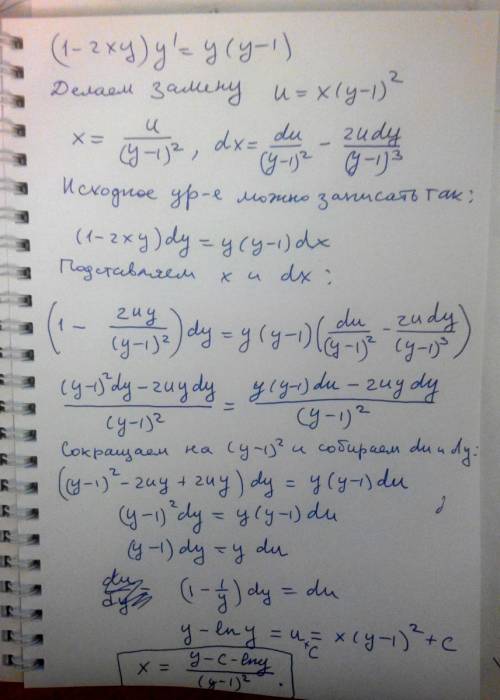 (1-2xy)y' = y(y-1)
Делаем замену u = x(y-1)²
x = u/(y-1)², dx = du/(y-1)² - 2udy/(y-1)³
Исходное ур-е можно записать так:
(1-2xy)dy = y(y-1)dx
Подставляем x и dx:
(1 - 2uy/(y-1)²)dy = y(y-1)(du/(y-1)² - 2udy/(y-1)³)
((y-1)²dy - 2uydy)/(y-1)² = (y(y-1)du - 2uydy)/(y-1)²
Сокращаем на (y-1)² и собираем du и dy:
((y-1)² - 2uy + 2uy)dy = y(y-1)du
(y-1)²dy = y(y-1)du
(y-1)dy = y du
(1 - 1/y)dy = du
y - ln y = u + C = x(y-1)² + C
x = (y - C - ln y)/(y-1)².